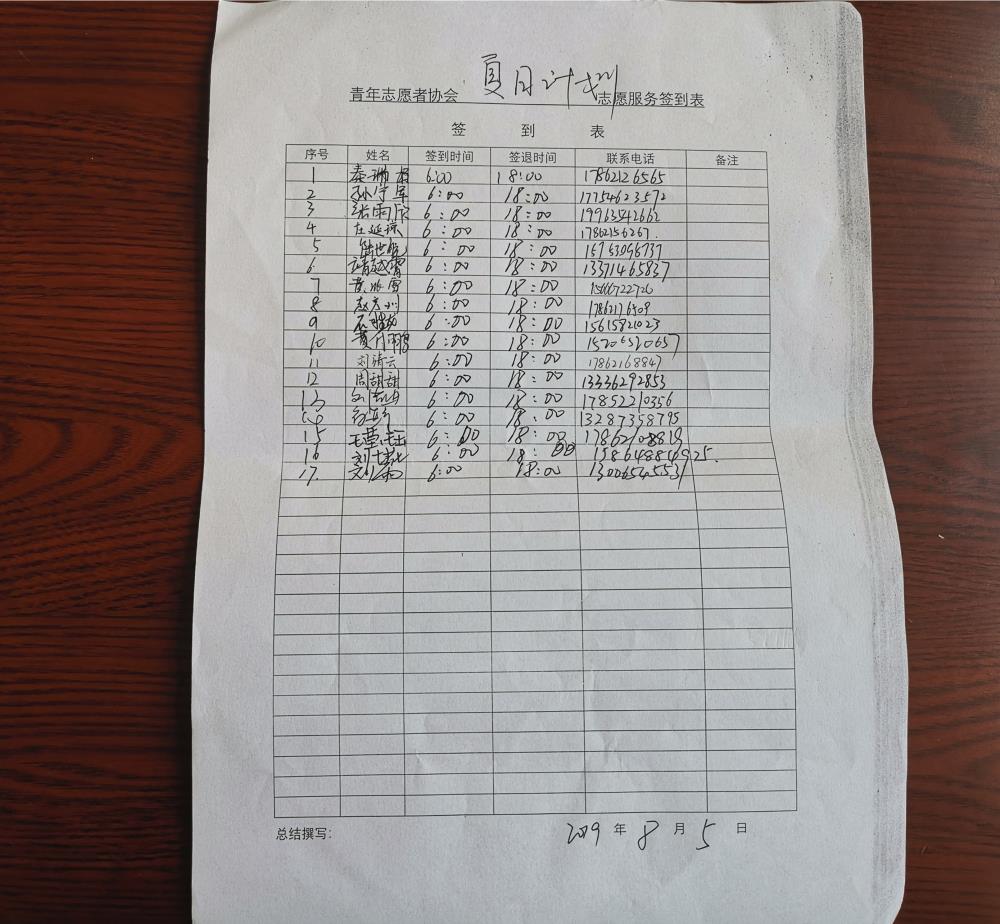 青年志愿者协会 夏日计划 志愿服务签到表
签 到 表
序号 姓名 签到时间 签退时间 联系电话 备注
1 秦 6:00 18:00 17862126565
2 孙宁军 6:00 18:00 17754623572
3 张雨欣 6:00 18:00 19963542662
4 左延琪 6:00 18:00 17862156267.
5 6:00 18:00 15753066737
6 靖越霄 6:00 18:00 13371465837
7 6:00 18:00 15666722726
8 赵 6:00 18:00 17862176509
9 石 6:00 18:00 15615821023
10 黄 6:00 18:00 15206520657
11 刘清云 6:00 18:00 17862168847
12 周甜甜 6:00 18:00 13336292853
13 6:00 18:00 17852210356
14 6:00 18:00 13287358795
15 王 6:00 18:00 17862108819
16 刘 6:00 18:00 15864884925.
17. 6:00 18:00 13006545531
总结撰写: 2019 年 8 月 5 日